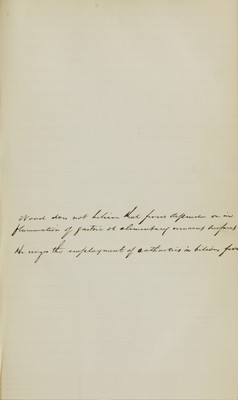 Wood does not believe that fever depends on in
flammation of gastric or alimentary mucous surfaces
He urges the employment of cathartics in bilious fever